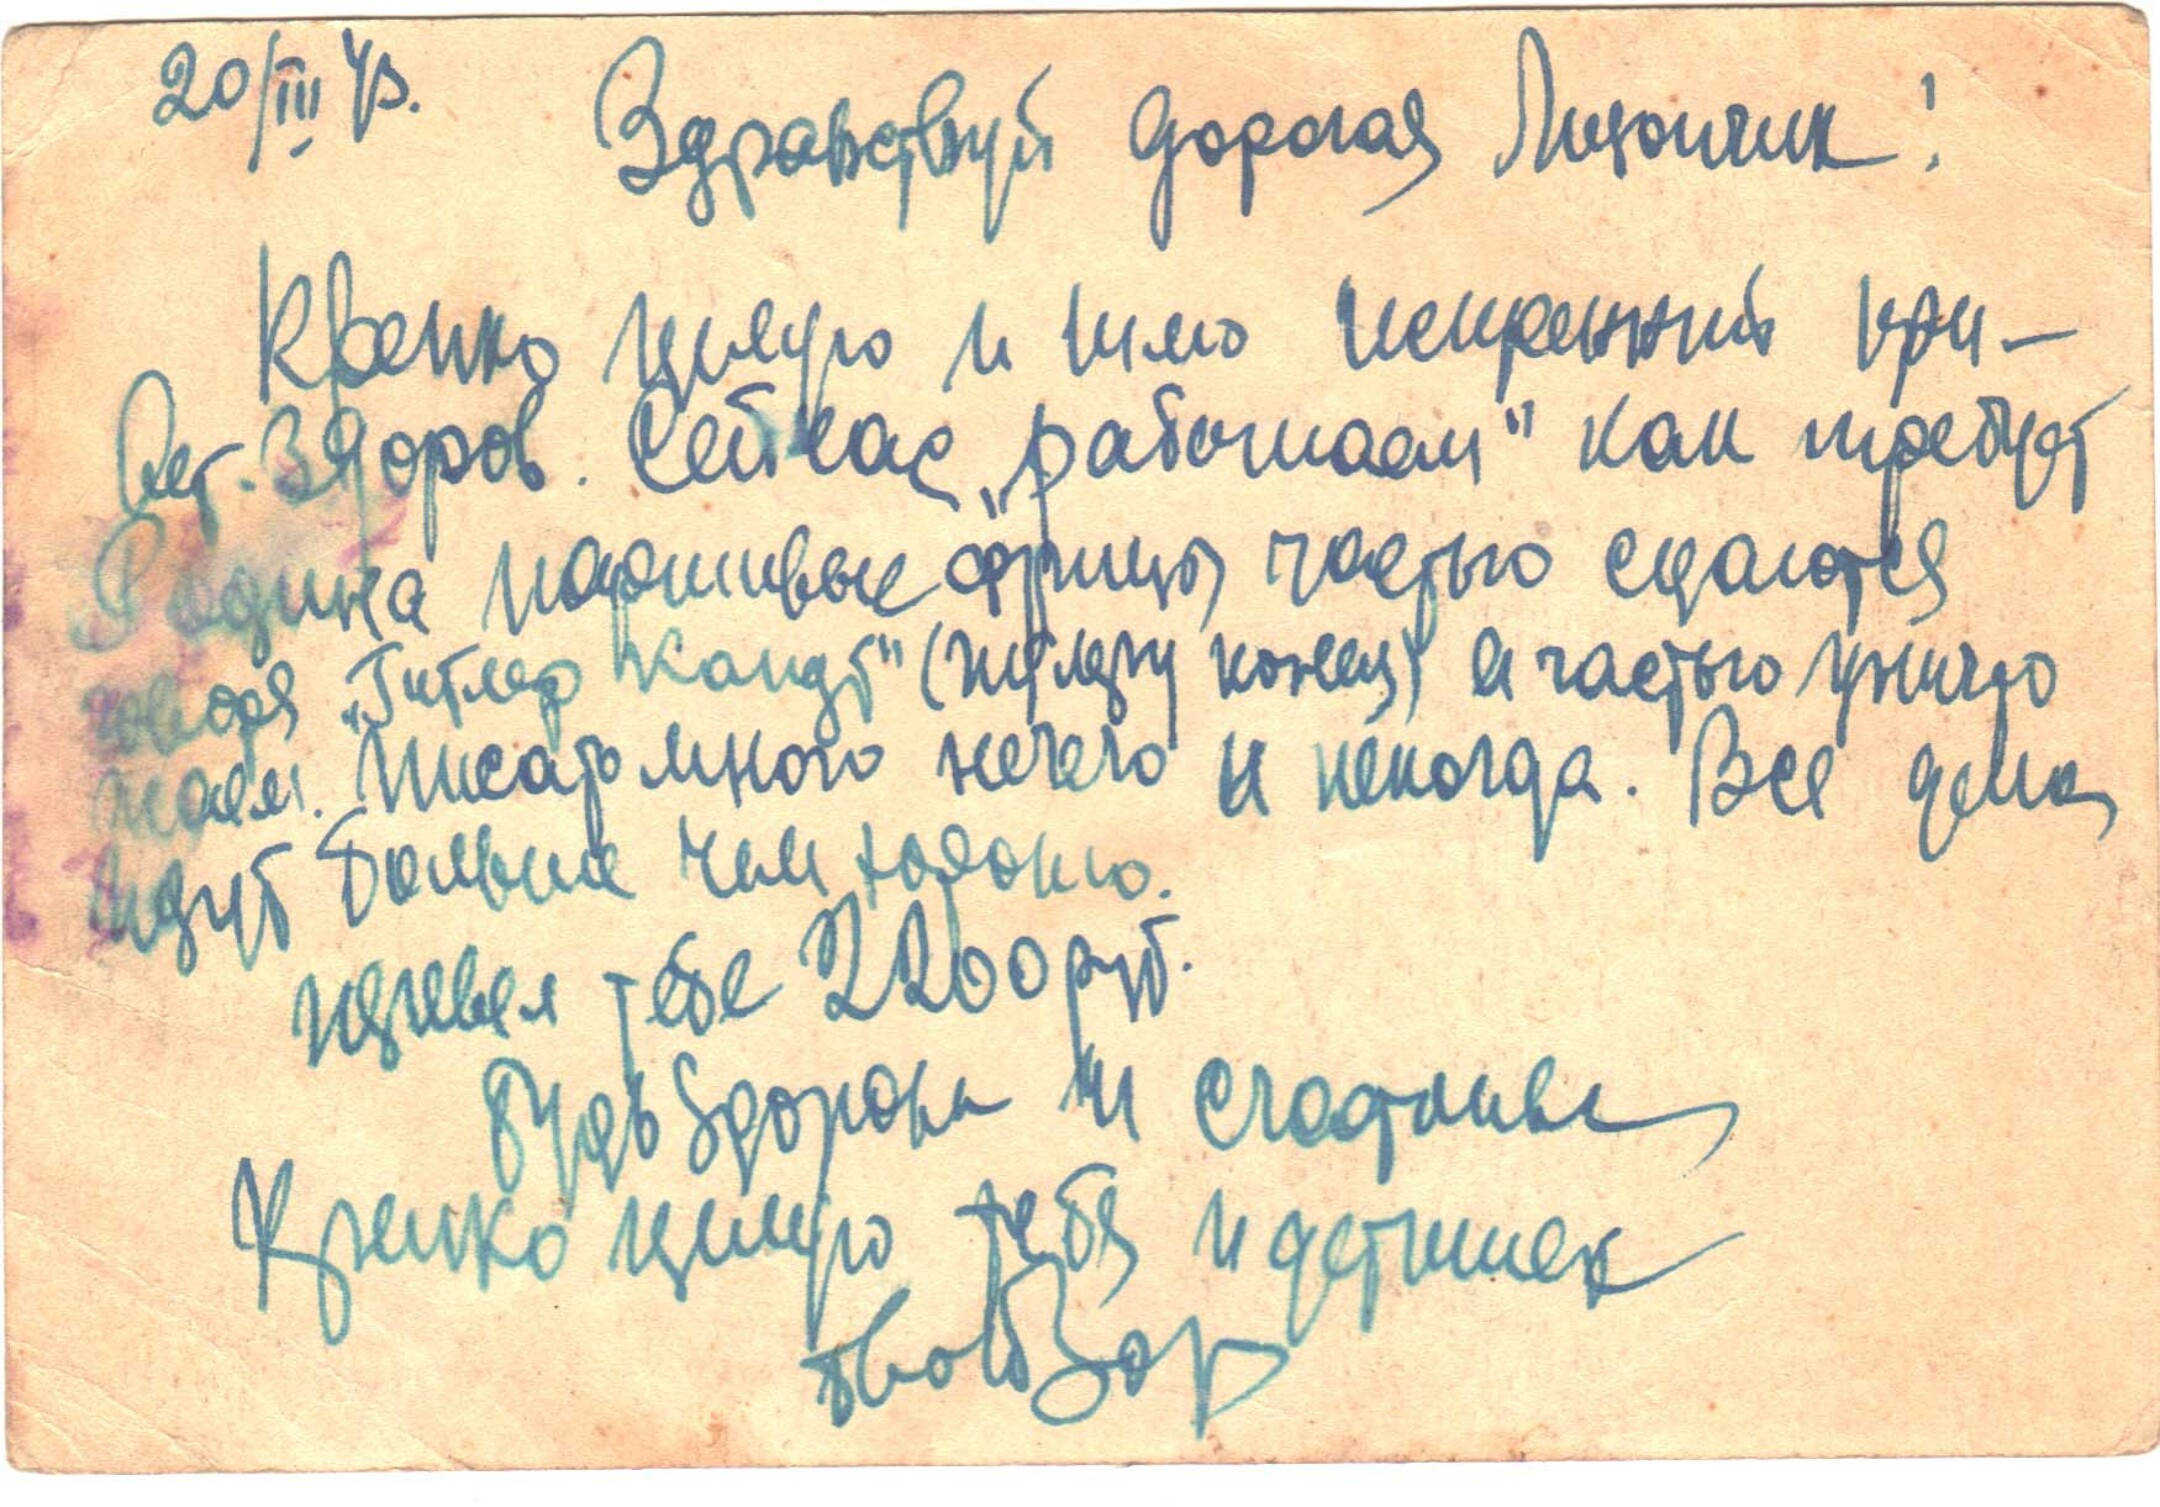 20/III 43.
Здравствуй дорогая Лизончик!
Крепко целую и шлю искренний при-
вет. Здоров. Сейчас „работаем" как требует
Родина паршивые фрицы частью сдаются
говоря „Гитлер капут" ( конец) а частью уничто
жаем. Писать много нечего и некогда. Все дела
идут больше чем хорошо.
тебе 2200 руб.
Будь здорова и счастлива
Крепко целую тебя и детишек
твой